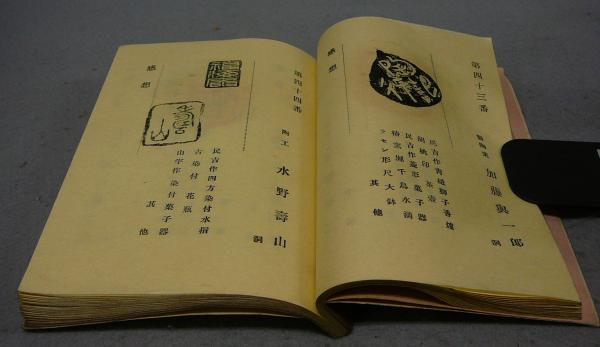 第四十三番
製陶業 加藤與一郎 洞
民吉作青磁獅子香爐
胡桃印茶壺
民吉作菱形菓子器
椿窯堀千鳥水滴
ラセン形尺大鉢
其他
感想
第四十四番
陶工 水野壽山 洞
民吉作四方染付水指
古染付花瓶
山半作染付菓子器
其他
感想